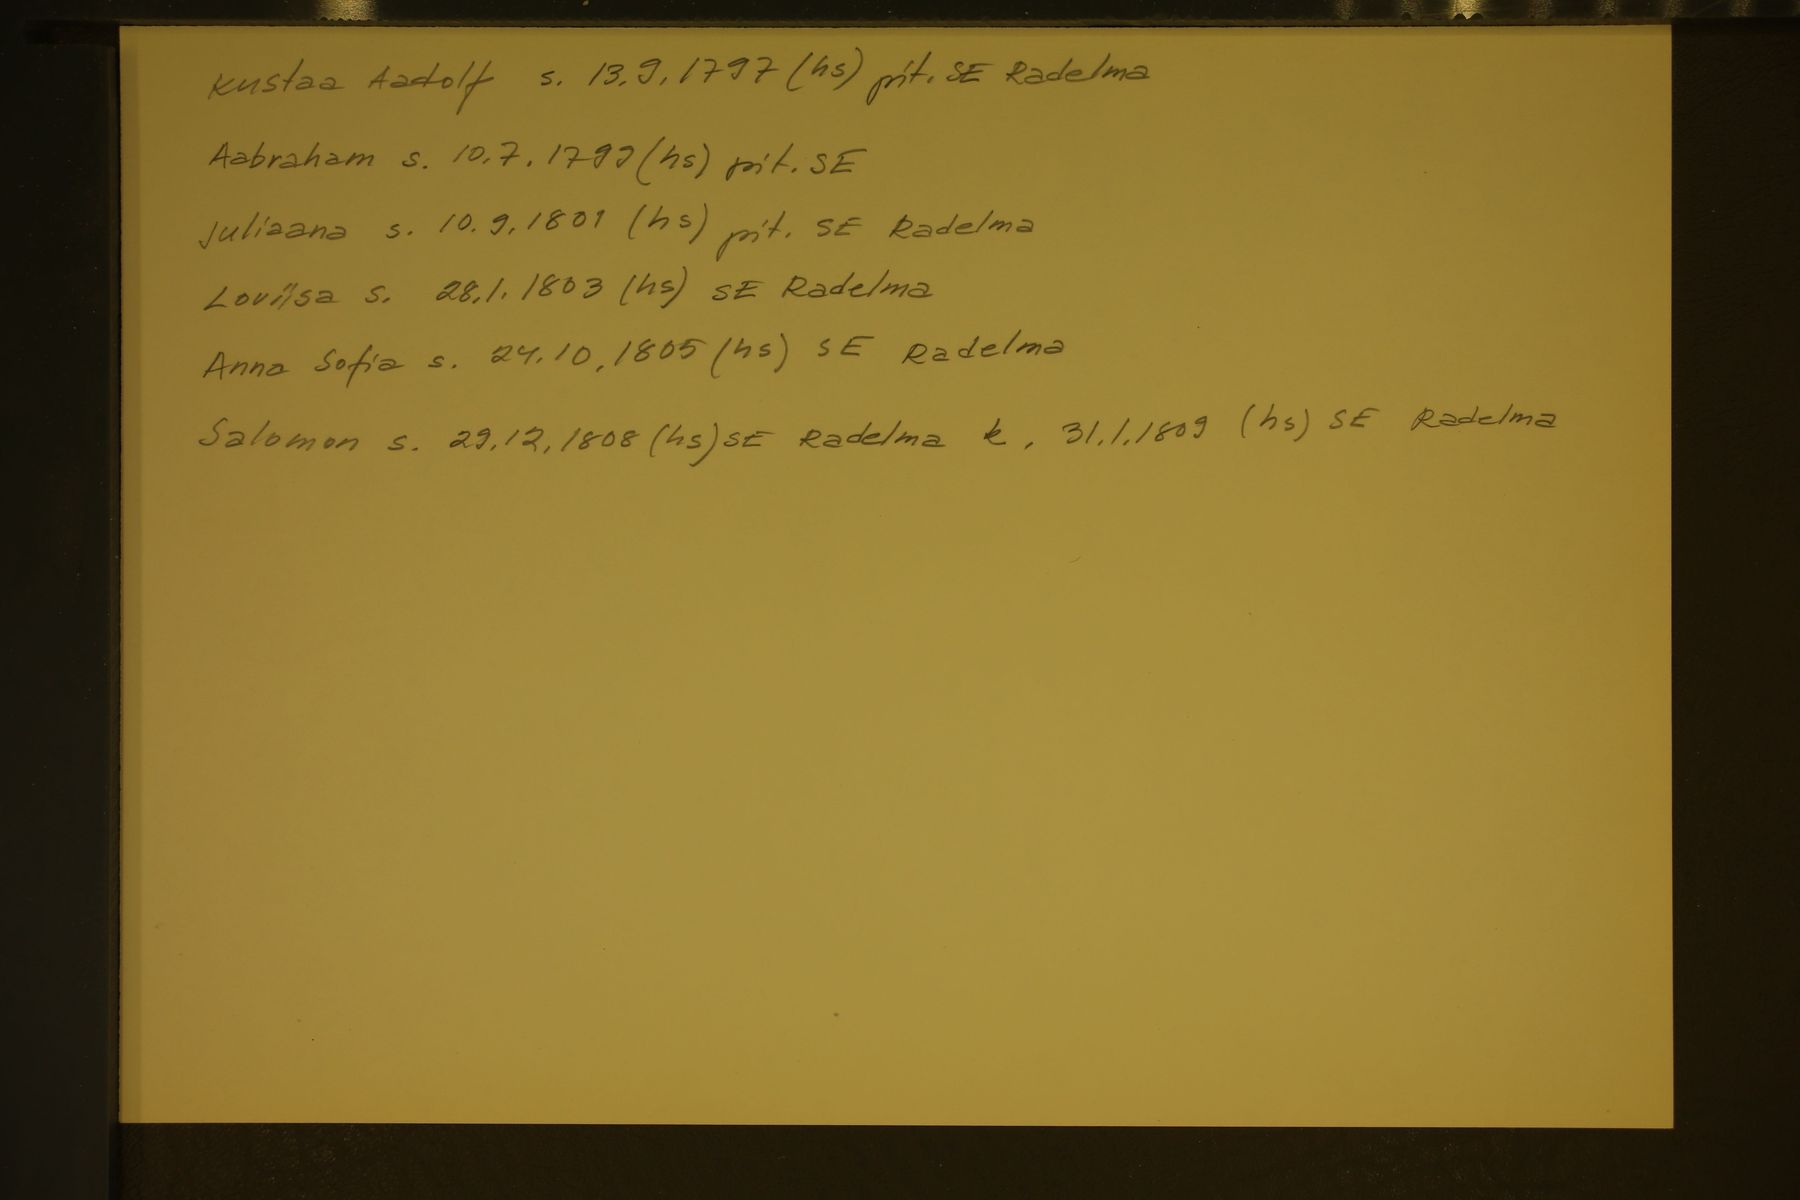 Kustaa Aadolf s. 13.9.1797 (hs) pit. SE Radelma
Aabraham s. 10.7.1799 (hs) pit. SE
Juliaana s. 10.9.1801 (hs) pit. SE Radelma
Loviisa s. 28.1.1803 (hs) SE Radelma
Anna Sofia s. 24.10.1805 (hs) SE Radelma
Salomon s. 29.12.1808 (hs) SE Radelma k. 31.1.1809 (hs) SE Radelma